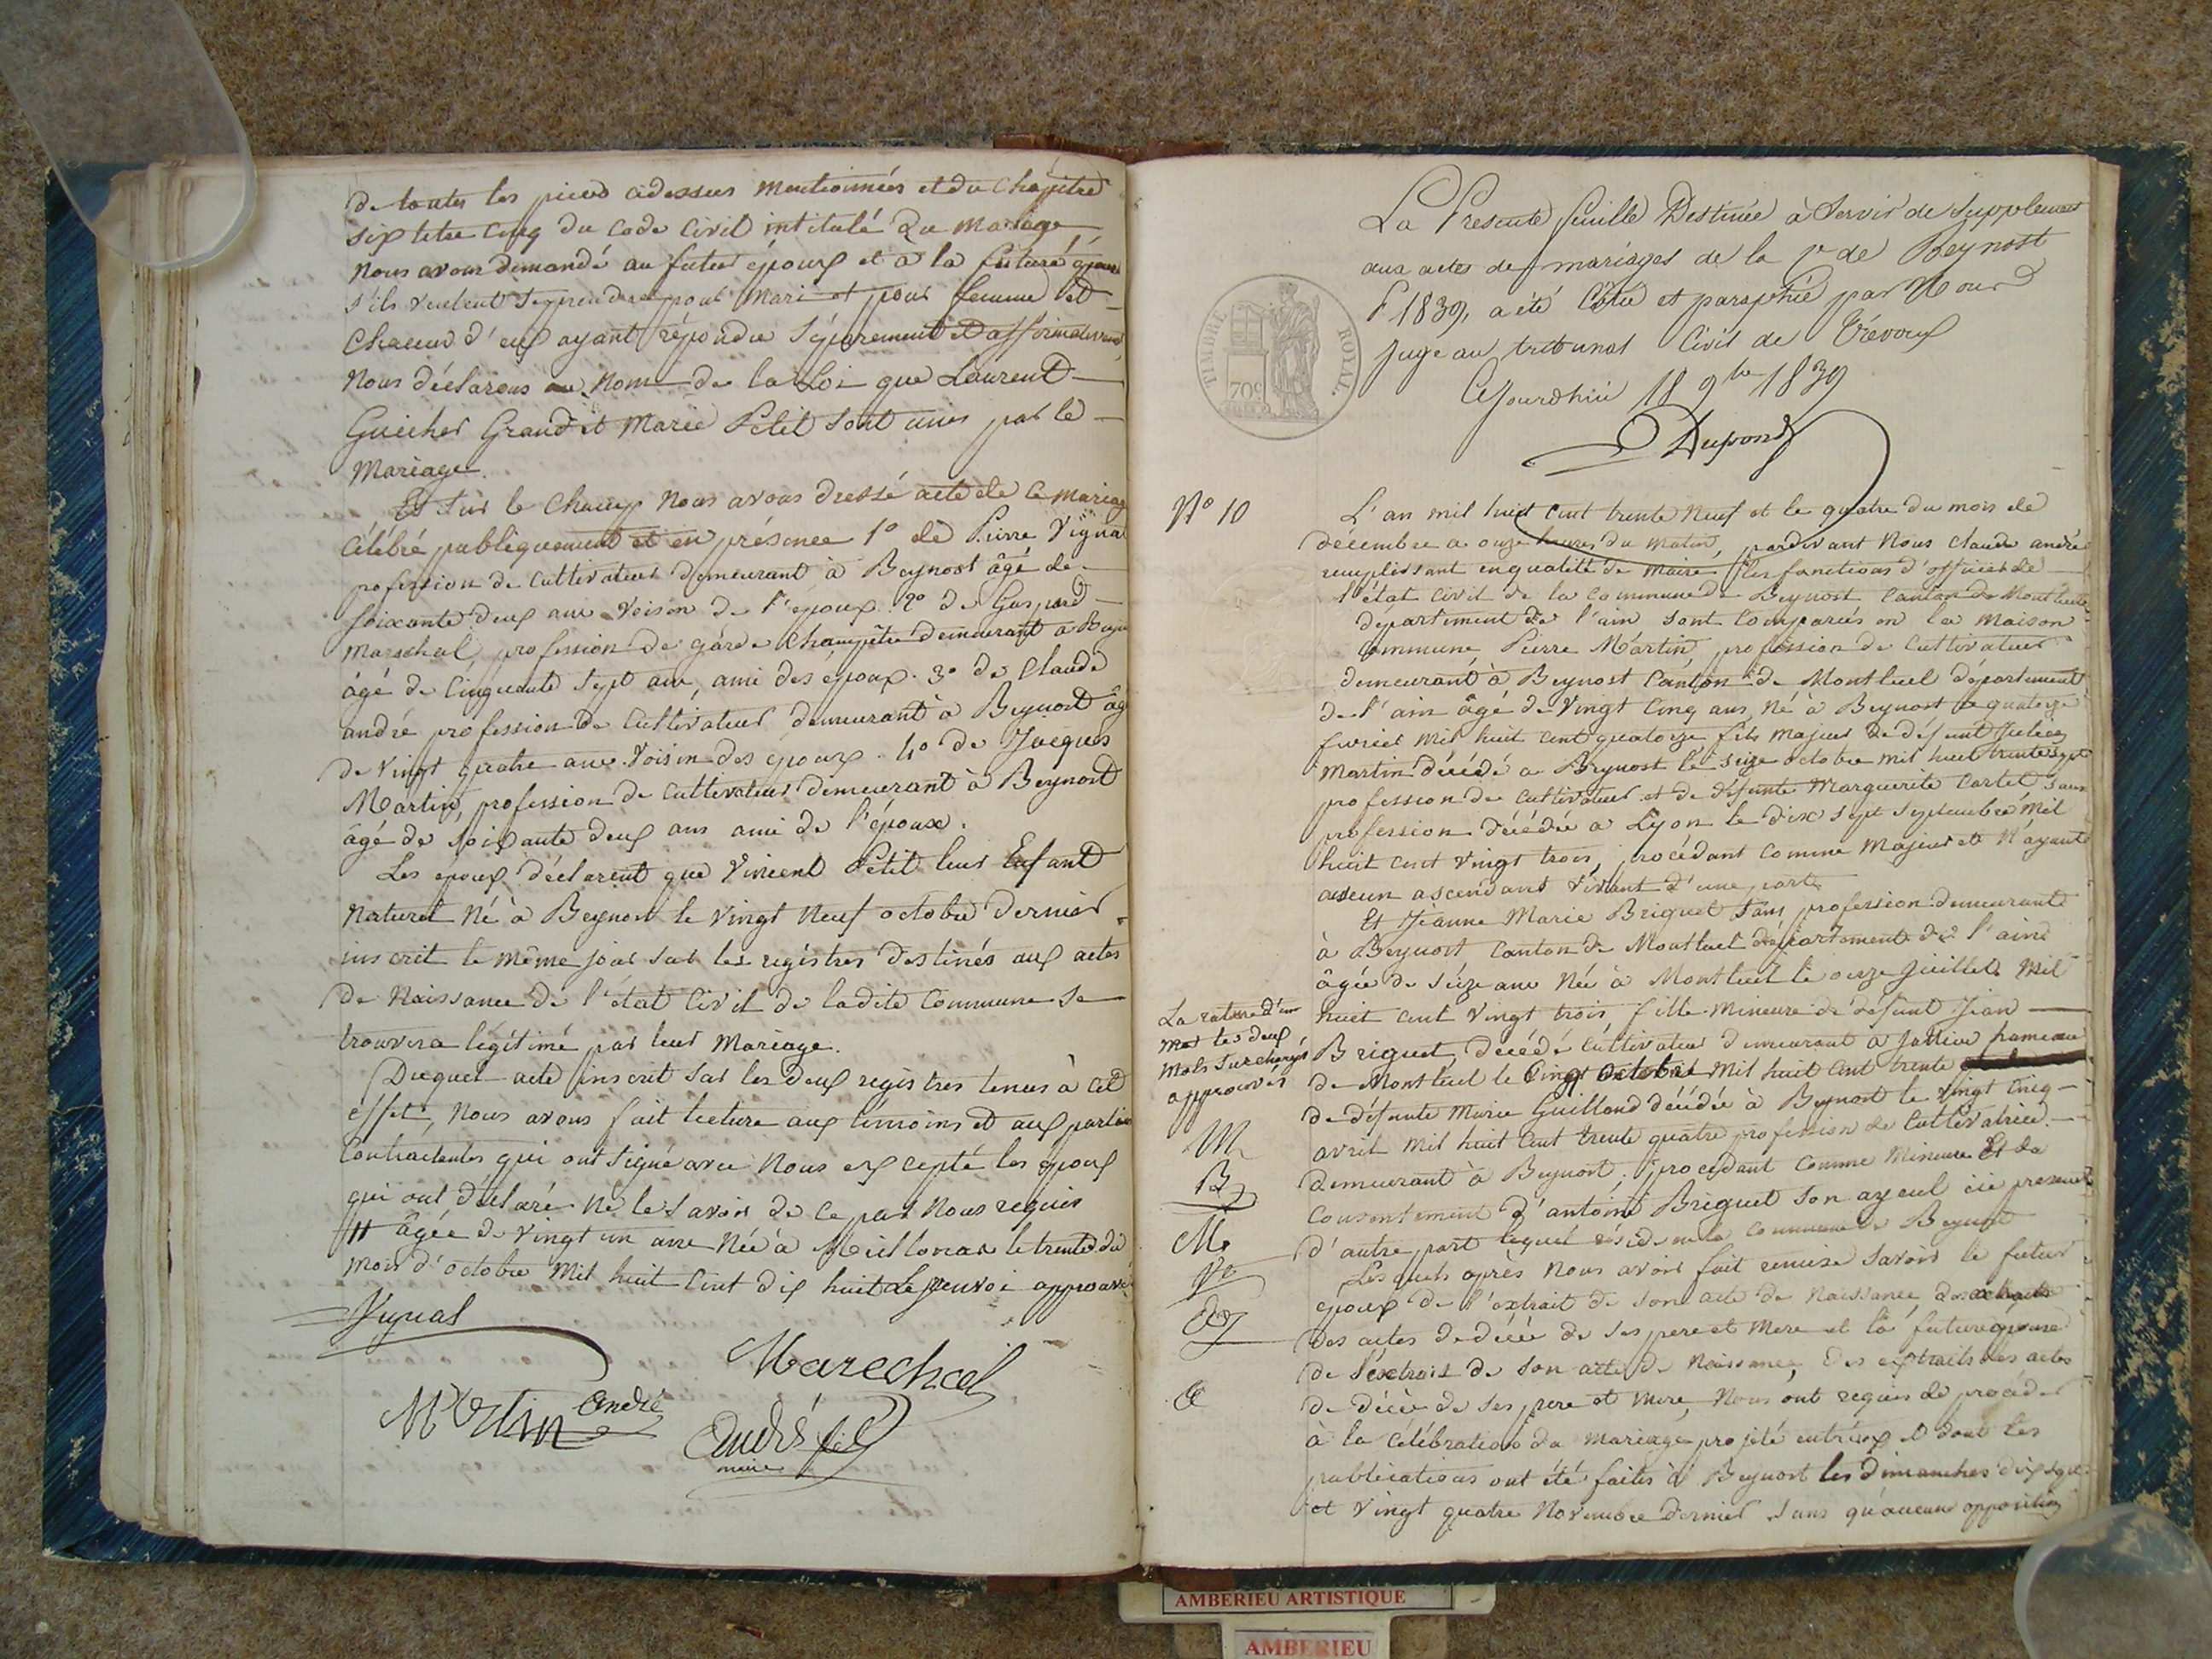 de toutes les pieces cidessus mentionnées et du Chapitre
six titre Cinq du Code Civil intitulé Du Mariage
Nous avons demandé au futur époux et à la future épouse
s'ils veulent se prendre pour Mari et pour femme et
Chacun d'eux ayant répondu Séparement et affirmativement
Nous déclarons au Nom de la Loi que Laurent
Guicher Grand et Marie Petit sont unis par le
Mariage.
Et sur le Champ Nous avons dressé acte de ce mariage
Célébré publiquement et en présence 1º de Pierre Vignal
profession de Cultivateur demeurant à Beynost âgé de
soixante deux ans voisin de l'époux 2º de Gaspard
Marechal, profession de garde Champêtre demeurant à Beyn
âgé de Cinquante Sept ans, ami des époux. 3º de Claude
andré profession de Cultivateur demeurant à Beynost âg
de vingt quatre ans Voisin des époux. 4º de Jacques
Martin, profession de Cultivateur demeurant à Beynost
âgé de soixante deux ans ami de l'époux.
Les époux déclarent que Vincent Petit leur Enfant
Naturel Né à Beynost le vingt Neuf octobre dernier
inscrit le même jour sur les régistres destinés aux actes
de Naissance de l'état Civil de ladite Commune se
trouvera légitimé par leur Mariage.
Duquel acte inscrit sur les deux registres tenus à cet
effet, Nous avons fait lecture aux témoins et aux parties
Contractantes qui ont signé avec Nous excepté les époux
qui ont déclaré Ne le savoir de ce par Nous requis
# âgée de vingt un ans Née à le trente du
mois d'octobre Mil huit Cent dix huit Le renvoi approuvé
Vignal
Marechal
Martin André
André fils
maire
La Presente feuille Destinée à Servir de Supplement
aux actes de mariages de la Cne de Beynost
p 1839, a été Cotée et paraphée par Nous
Juge au tribunal Civil de Trévoux
Cejourdhui 18 9bre 1839
Dupond
TIMBRE ROYAL
70c
Nº 10
L'an mil huit cent trente Neuf et le quatre du mois de
décembre a onze heures du matin, pardevant Nous Claude andré
remplissant en qualité de Maire les fonctions d'officier de
l'état Civil de la Commune de Beynost Canton de Montluel
département de l'ain sont Comparus en la Maison
Commune Pierre Martin profession de Cultivateur
demeurant à Beynost Canton de Montluel département
de l'ain âgé de Vingt Cinq ans, Né à Beynost le quatorze
fevrier Mil huit cent quatorze fils majeur de défunt
Martin décédé a Beynost le seize octobre mil huit trente sept
profession de Cultivateur et de défunte Marguerite Cartet sans
profession décédée a Lyon le dix sept Septembre Mil
huit cent vingt trois, procédant comme Majeur et N'ayant
aucun ascendant Vivant d'une part
Et Jeanne Marie Briguet sans profession demeurante
à Beynost Canton de Montluel département de l'ain
âgée de seize ans Née à Montluel le onze Juillet Mil
huit cent Vingt trois fille Mineure de défunt Jean
Briguet, décédé Cultivateur demeurant à hameau
de Montluel le Cinq Octobre Mil huit Cent trente
de défunte Marie Guilland décédée à Beynost le Vingt Cinq
avril Mil huit Cent trente quatre profession de Cultivatrice.
demeurant à Beynost, procédant comme Mineure Et du
Consentement d'antoine Briguet son ayeul ici present
d'autre part lequel réside en la Commune de Beynost
Lesquels après Nous avoir fait remise Savoir le futur
époux de l'extrait de son acte de Naissance, des extraits
des actes de décès de ses pere et Mere et la future épouse
de l'extrait de son acte de Naissance, des extraits des actes
de décès de ses pere et Mere, Nous ont requis de procéder
à la Célébration du Mariage projeté entr'eux et dont les
publications ont été faites à Beynost les dimanches dix sept
et vingt quatre Novembre dernier sans qu'aucune opposition
La rature d'un
mot les deux
mots surchargés
approuvés
M
B
M
AMBERIEU ARTISTIQUE
AMBERIEU